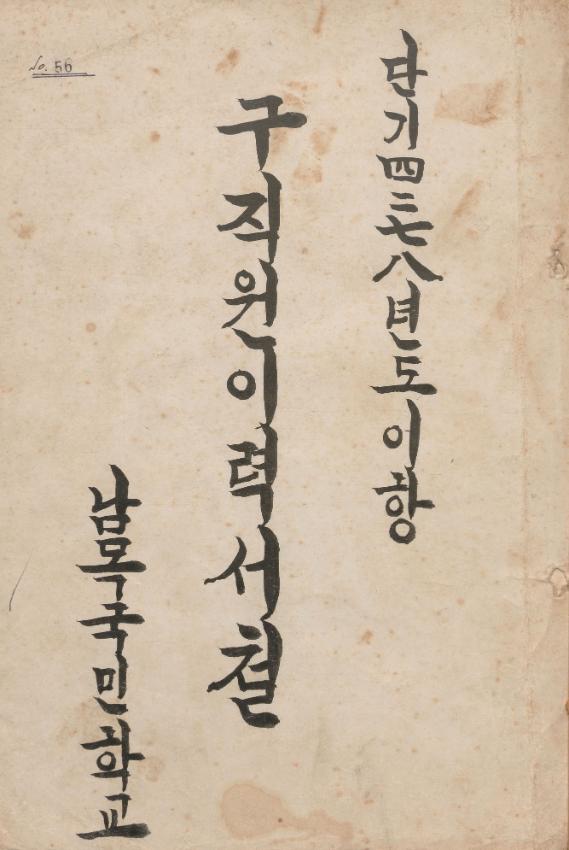 No. 56
단기四二七八년도이항
구직원이력서철
남목국민학교